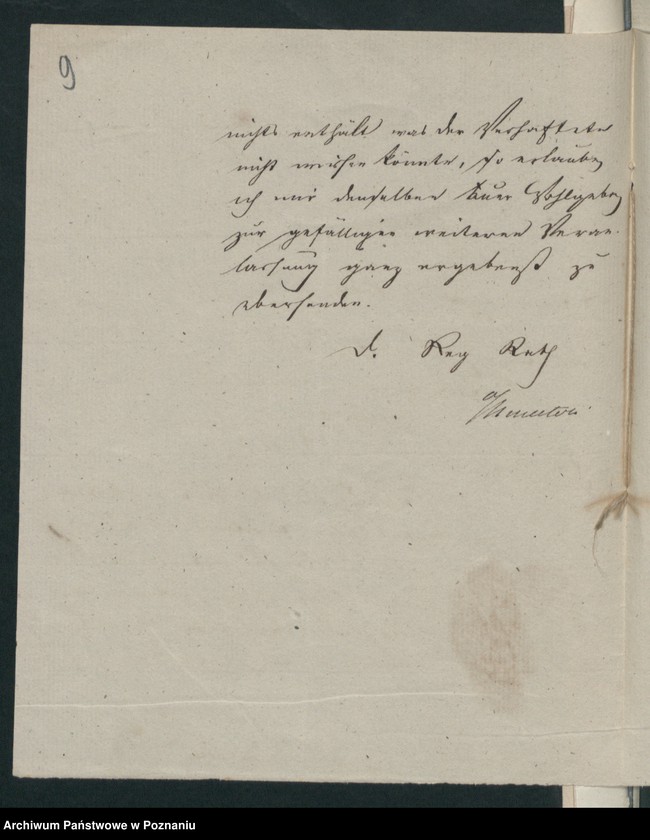 9
nichts enthält was der Verhaftete
nicht wissen könnte, so erlaube
ich mir denselben Euer Wohlgeb
zur gefälligen weiteren Veran-
lassung ganz ergebenst zu
übersenden.
D. Reg Rath
Archiwum Państwowe w Poznaniu